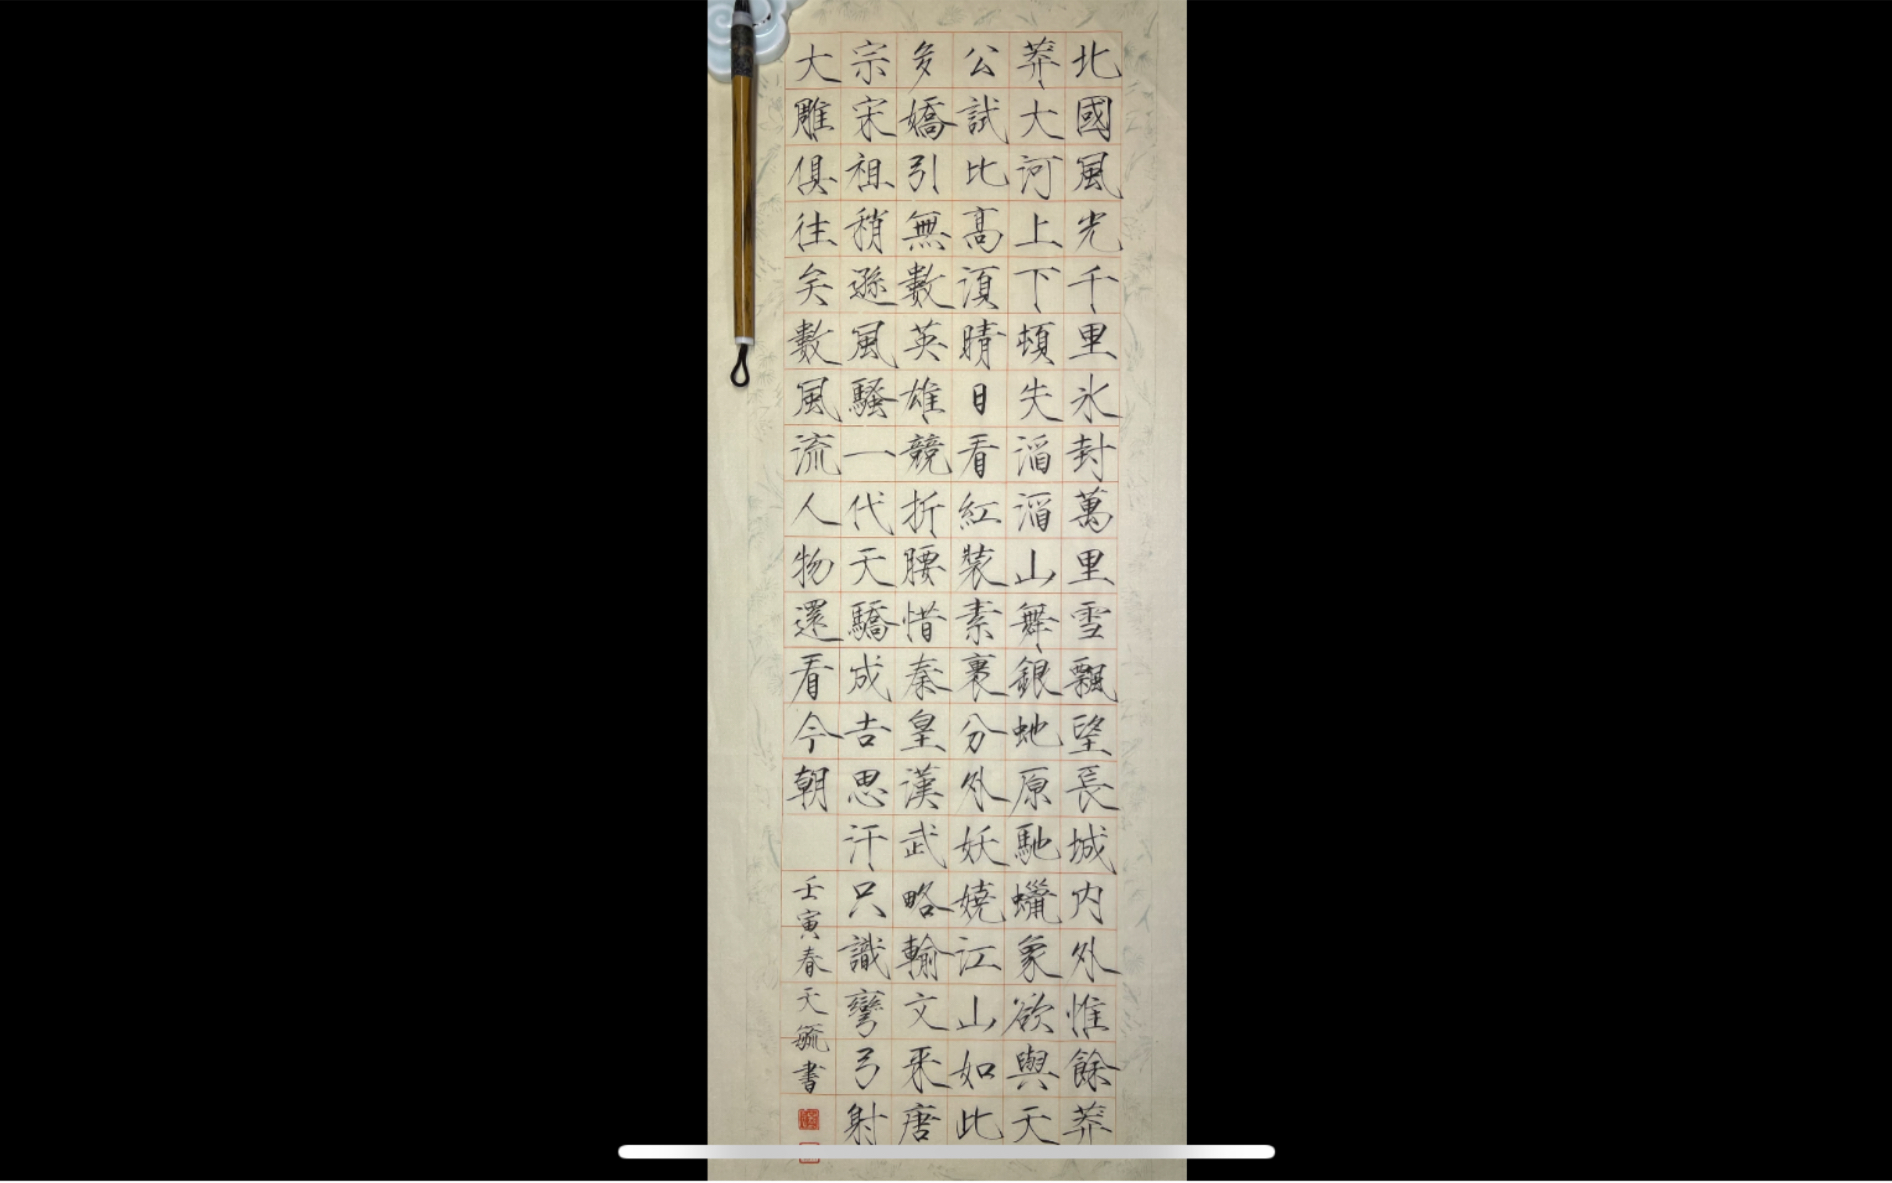 北國風光千里氷封萬里雪飄望長城内外惟餘莽
莽大河上下頓失滔滔山舞銀虵原馳蠟象欲與天
公試比髙湏晴日看紅裝素裹分外妖嬈江山如此
多嬌引無數英雄競折腰惜秦皇漢武略輸文采唐
宗宋祖稍遜風騷一代天驕成吉思汗只識彎弓射
大雕俱往矣數風流人物還看今朝
壬寅春天毓書